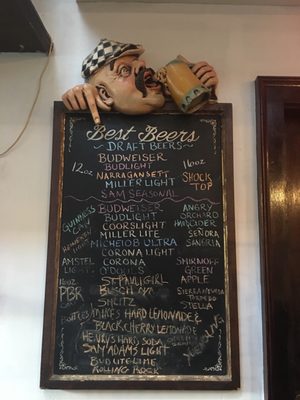 Best Beers
~DRAFT BEERS~
BUDWEISER
BUDLIGHT
12oz
16oz
NARRAGANSETT
MILLER LIGHT
SAM SEASONAL
SHOCK
TOP
BUDWEISER
BUDLIGHT
COORSLIGHT
MILLER LITE
MICHELOB ULTRA
CORONA LIGHT
CORONA
O'DOULS
ST PAULI GIRL
BUSCH
SHLITZ
GUINNESS
CAN
AMSTEL
LIGHT
16oz
PBR
CAN
ANGRY
ORCHARD
HARDCIDER
SEÑORA
SANGRIA
SMIRNOFF
GREEN
APPLE
SIERRA NEVADA
STELLA
MIKE'S HARD LEMONADE &
BLACK CHERRY LEMONADE
HENRY'S HARD SODA
SAM ADAMS LIGHT
BUDLITE LIME
ROLLING ROCK
YUENGLING